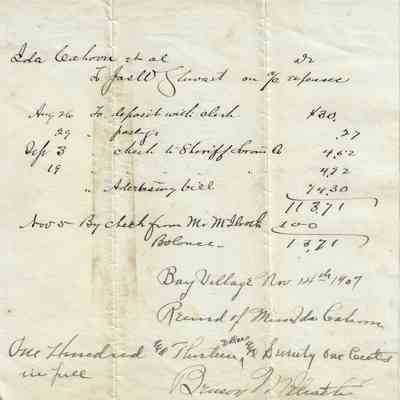 Ida Cahoon et al Dr
To Jas W Stewart on a/c expenses
Aug 26 To deposit with clerk $30.
29 " postage .27
Sep 3 " check to Sheriff 4.52
19 " 4.92
" Advertising bill 74.30
113.71
Nov 5 By check from Mr 100
Balance 13.71
Bay Village Nov 14th 1907
Received of Miss Ida Cahoon
One Hundred & Thirteen & Seventy one Cents
in full